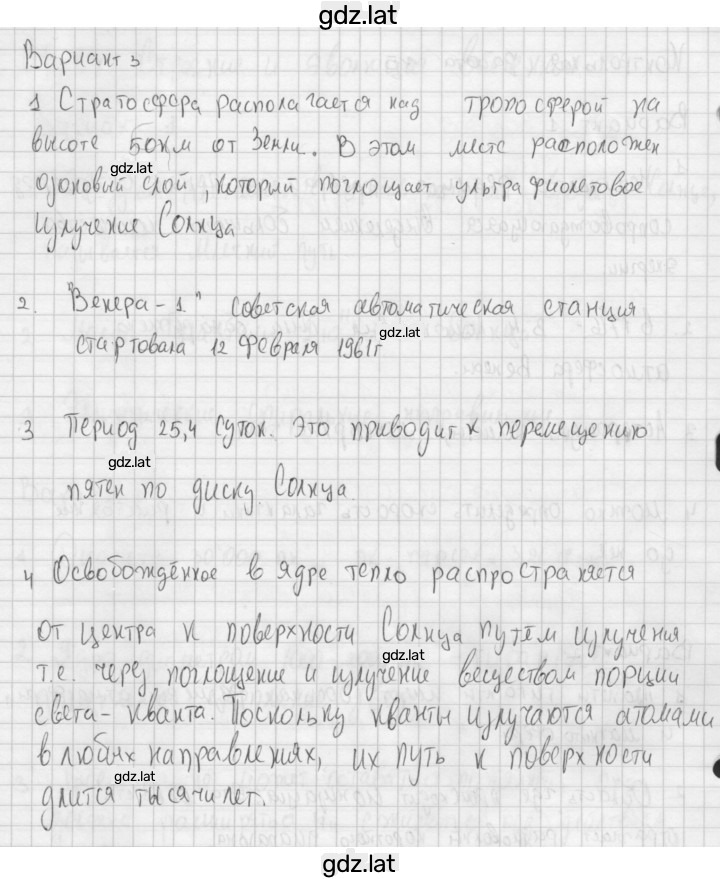 gdz.lat
Вариант 3
1 Стратосфера располагается над тропосферой на
высоте 50км от Земли. В этом месте расположен
gdz.lat
озоновый слой, который поглощает ультрафиолетовое
излучение Солнца
2. "Венера-1" советская автоматическая станция
gdz.lat
стартовала 12 февраля 1961г
3 Период 25,4 суток. Это приводит к перемещению
gdz.lat
пятен по диску Солнца.
4 Освобождённое в ядре тепло распространяется
от центра к поверхности Солнца путём излучения
gdz.lat
т.е. через поглощение и излучение веществом порции
света-кванта. Поскольку кванты излучаются атомами
в любых направлениях, их путь к поверхности
gdz.lat
длится тысячи лет.
gdz.lat